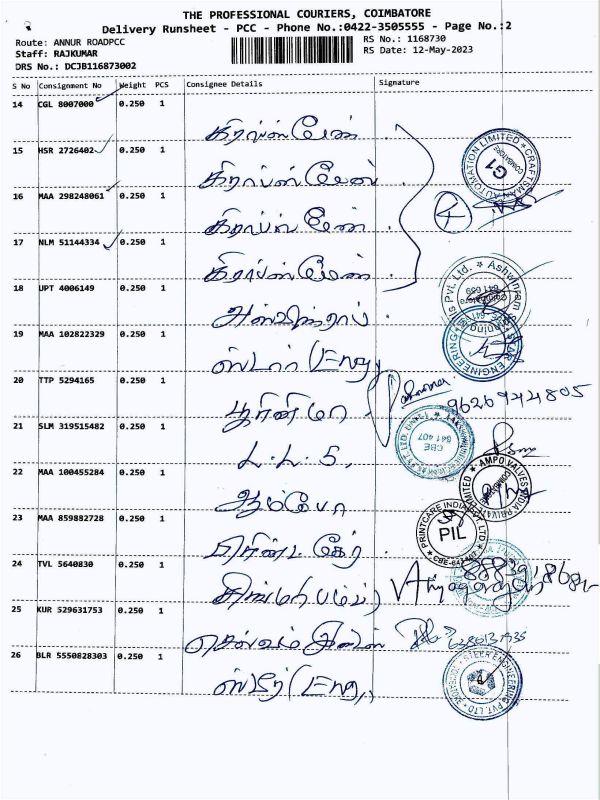 THE PROFESSIONAL COURIERS, COIMBATORE
Delivery Runsheet - PCC - Phone No.:0422-3505555 - Page No.:2
Route: ANNUR ROADPCC
Staff: RAJKUMAR
DRS No.: DCJB116873002
RS No.: 1168730
RS Date: 12-May-2023
S No Consignment No Weight PCS Consignee Details Signature
14 CGL 8007000 0.250 1 கிராப்ஸ்மேன்
15 HSR 2726402 0.250 1 கிராப்ஸ்மேன்
16 MAA 298248061 0.250 1 கிராப்ஸ்மேன்
17 NLM 51144334 0.250 1 கிராப்ஸ்மேன்
CRAFTSMAN AUTOMATION LIMITED
COIMBATORE
G1
4
18 UPT 4006149 0.250 1
19 MAA 102822329 0.250 1 ஸ்டார் (Engg
STAR ENGINEERING
20 TTP 5294165 0.250 1
9626944805
21 SLM 319515482 0.250 1 L.L.5,
CBE
641 407
22 MAA 100455284 0.250 1 ஆம்போ
AMPO VALVES INDIA PRIVATE LIMITED
23 MAA 859882728 0.250 1 பிரிண்ட் கேர்
PRINTCARE INDIA PVT. LTD
PIL
24 TVL 5640830 0.250 1
25 KUR 529631753 0.250 1
26 BLR 5550828303 0.250 1 ஸ்டீர் (Engg,
STEER ENGINEERING PVT. LTD